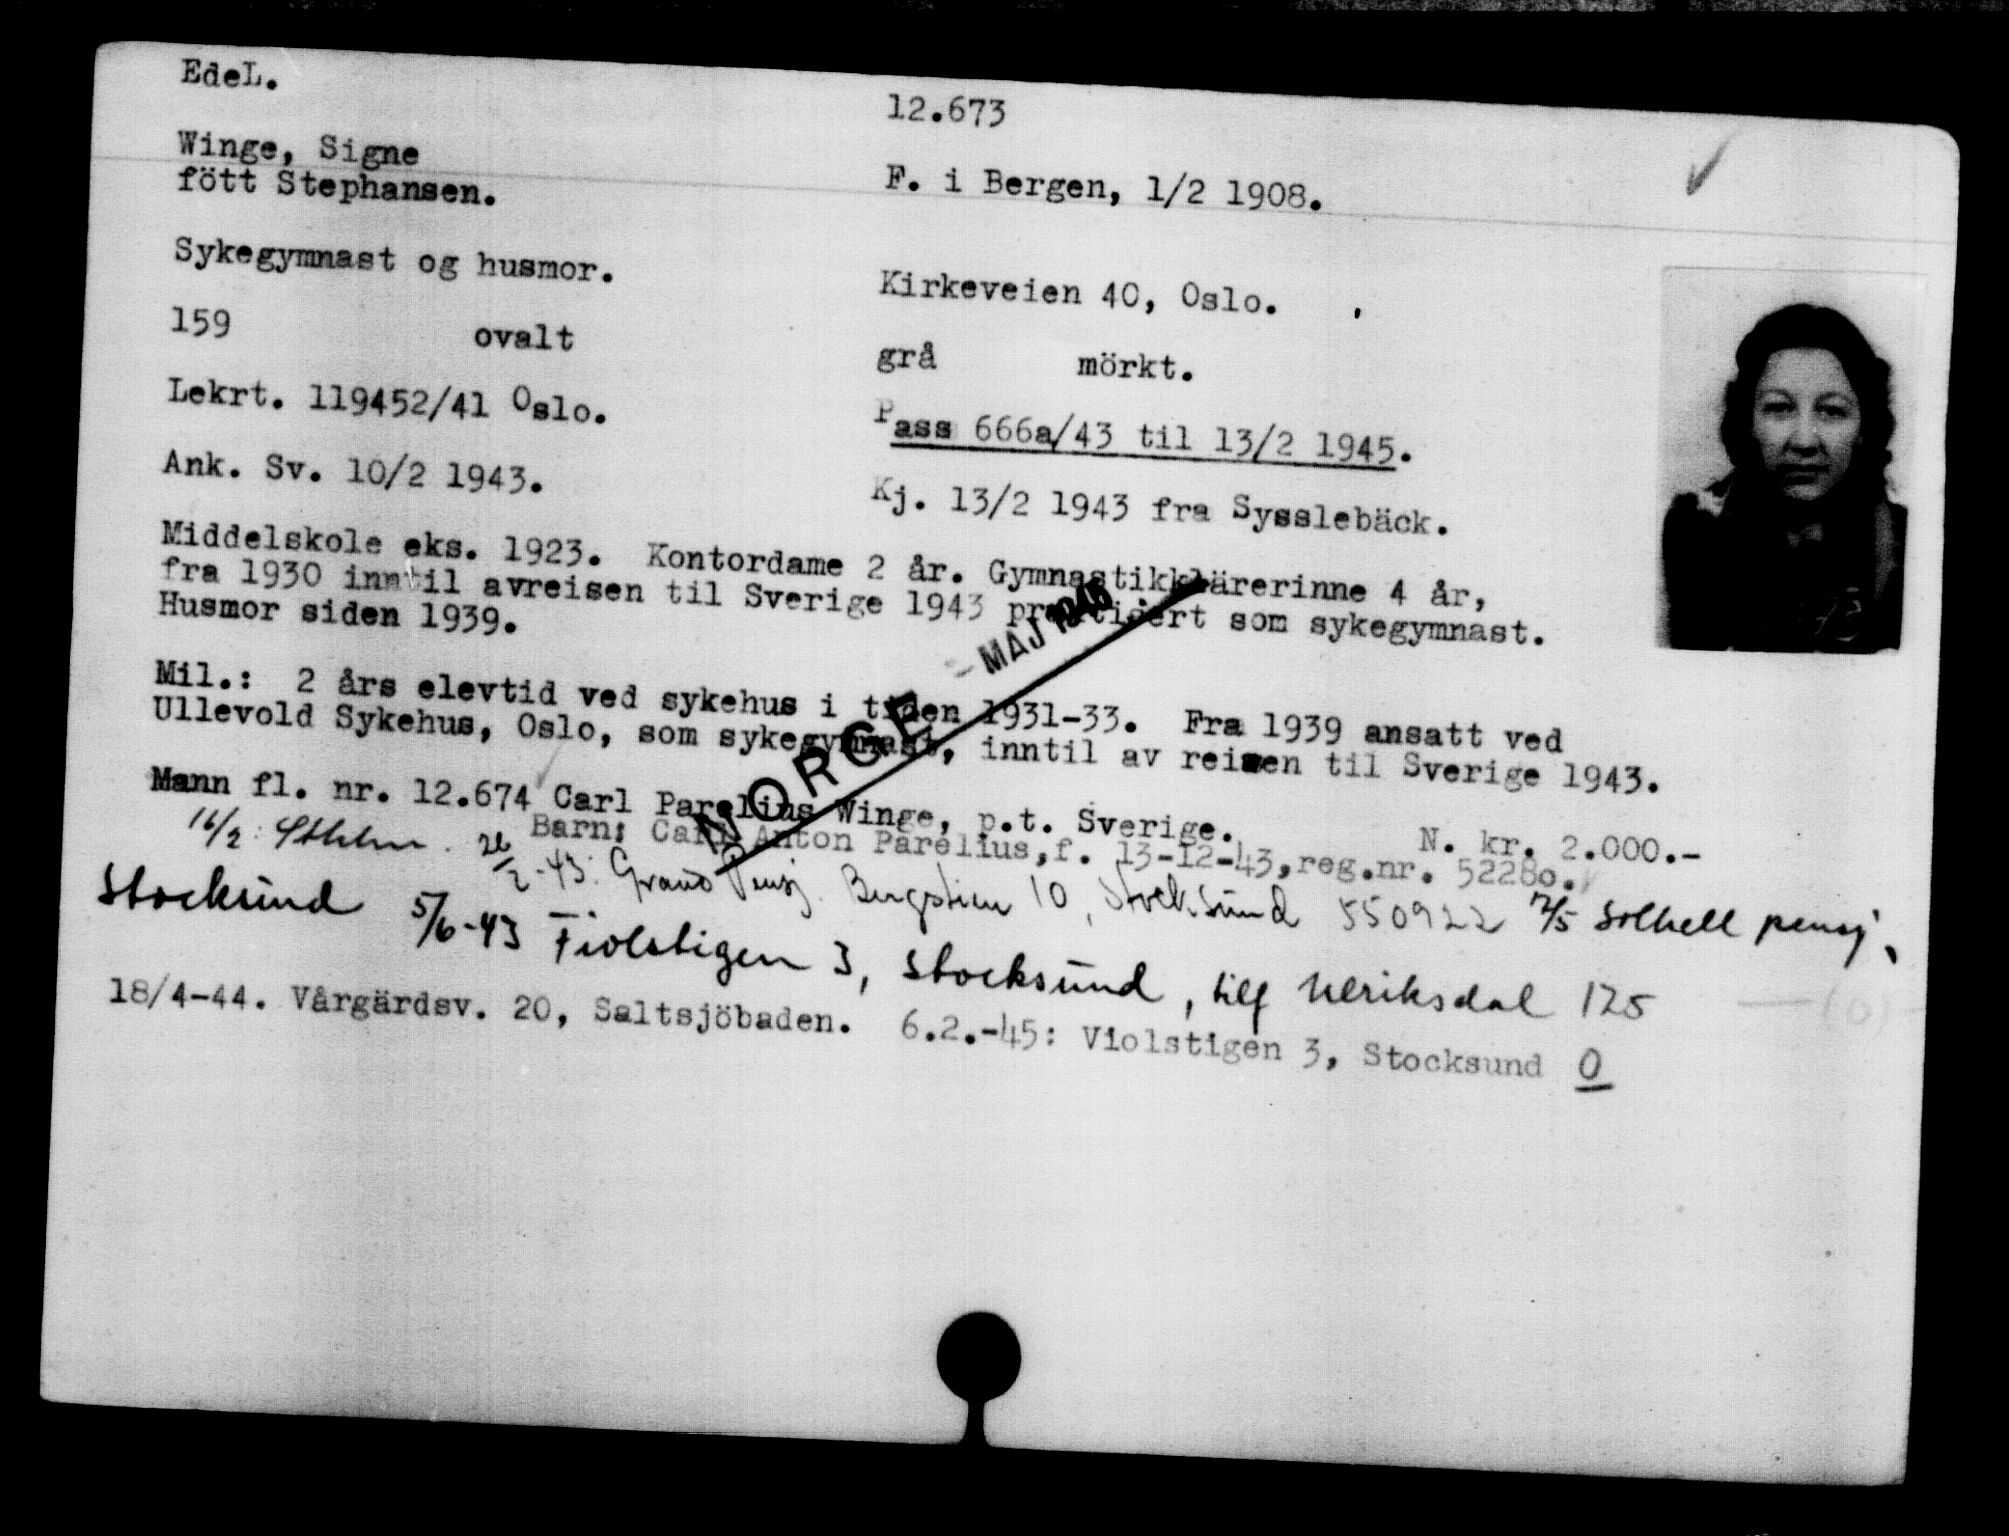 EdeL.
12.673
Winge, Signe
fött Stephansen.
F. i Bergen, 1/2 1908.
Sykegymnast og husmor.
Kirkeveien 40, Oslo.
159 ovalt
grå mörkt.
Lekrt. 119452/41 Oslo.
Pass 666a/43 til 13/2 1945.
Ank. Sv. 10/2 1943.
Kj. 13/2 1943 fra Sysslebäck.
Middelskole eks. 1923. Kontordame 2 år. Gymnastikklärerinne 4 år,
fra 1930 inntil avreisen til Sverige 1943 praktisert som sykegymnast.
Husmor siden 1939.
Mil.: 2 års elevtid ved sykehus i tiden 1931-33. Fra 1939 ansatt ved
Ullevold Sykehus, Oslo, som sykegymnast, inntil av reisen til Sverige 1943.
NORGE - MAJ 1945
Mann fl. nr. 12.674 Carl Parelius Winge, p.t. Sverige.
N. kr. 2.000.-
Barn: Carl Anton Parelius, f. 13-12-43, reg.nr. 52280.
16/2: Sthlm. 26/2-43: Grand Pensj. 10, Stocksund 550922 12/5 Solhell pensj,
Stocksund 5/6-43 Fiolstigen 3, Stocksund, tlf Ulriksdal 125
18/4-44. Vårgärdsv. 20, Saltsjöbaden. 6.2.-45: Violstigen 3, Stocksund 0
(0)